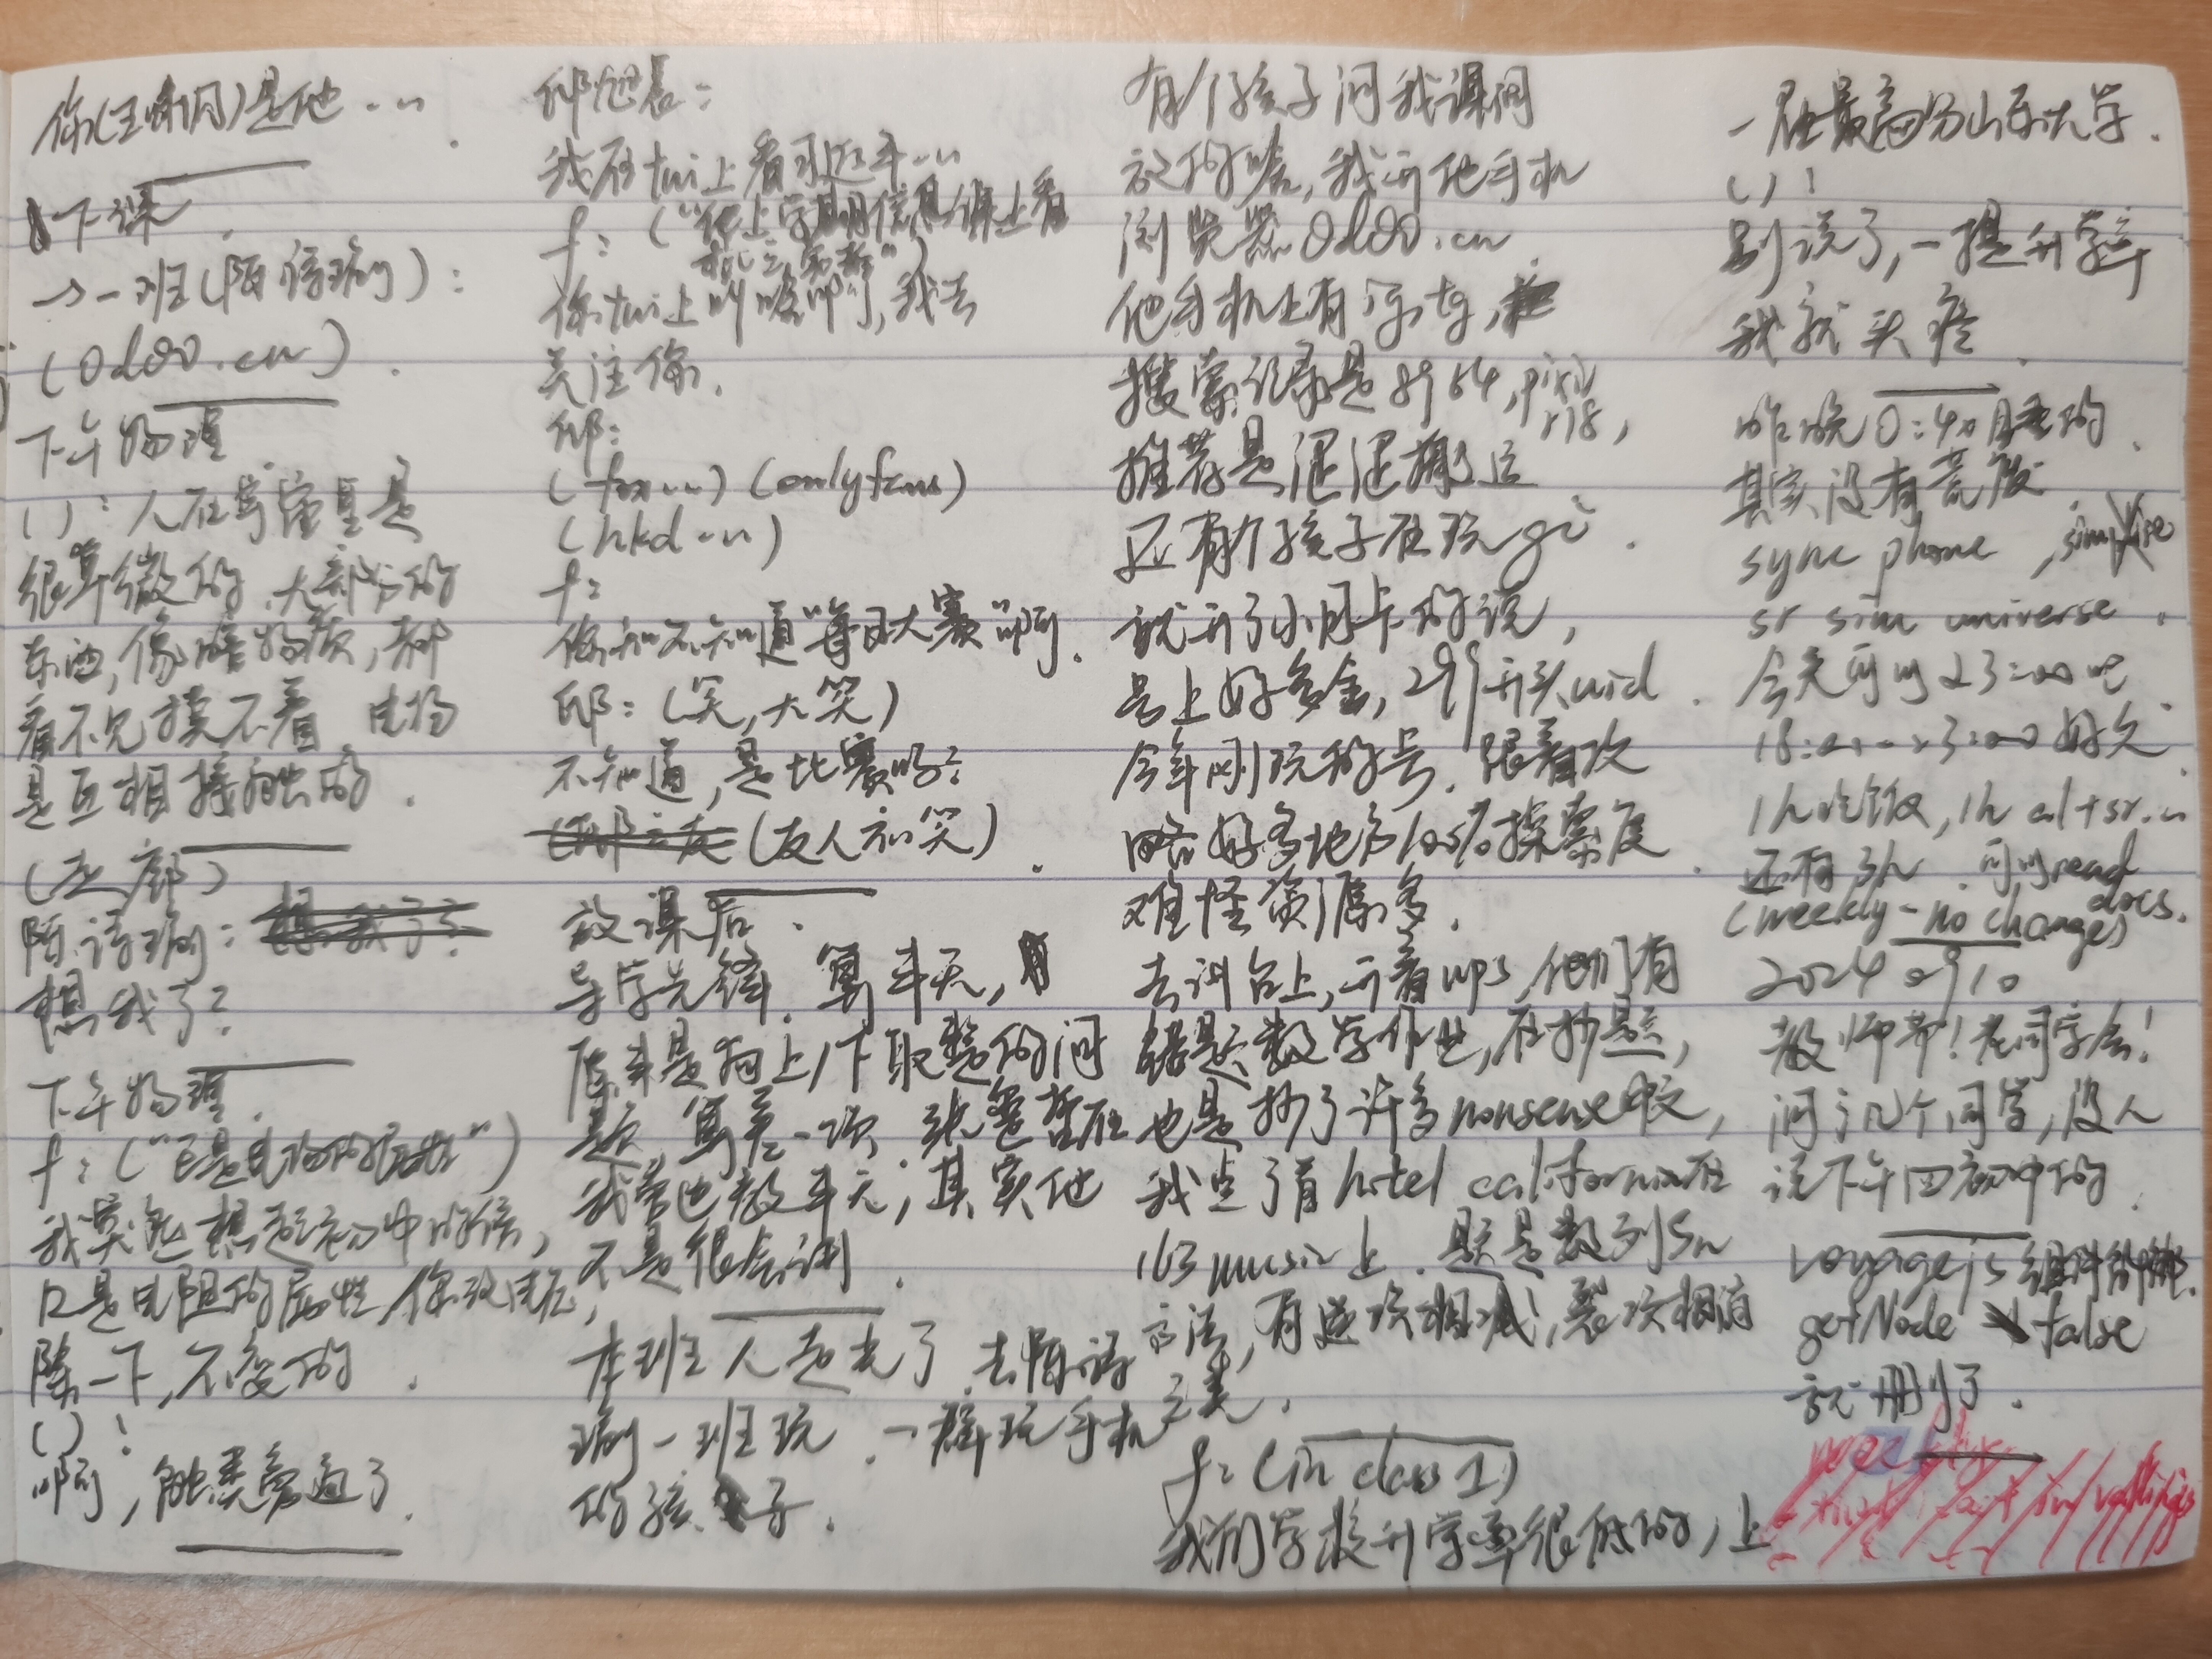 是他……
下课.
→一班(陌诗瑜):
(0d00.cn).
下午物理
():人在宇宙里是
很卑微的.大部分的
东西,像暗物质,都
看不见摸不着 电场
是互相接触的.
(走廊)
陌诗瑜:
想我了?
下午物理.
f:("E是电场的属性")
我突然想起初中的话,
R是电阻的属性,你
除一下,不变的.
()!
啊,触类旁通了.
邱
我在twi上看到近年…
f:(
你twi上叫啥啊,我去
关注你.
邱:
(onlyfans)
(hkd…)
f:
你知不知道"每日大赛"啊.
邱:(笑,大笑)
不知道,是比赛吗?
(友人和笑).
放课后.
导学先锋.算半天,
原来是向上/下取整的问
题,算差一项.
我旁边教半天,其实他
不是很会讲.
本班人走光了.去陌诗
瑜一班玩.一群玩手机
的孩子.
有个孩子问我课间
放的啥,我开他手机
浏览器0d00.cn.
他手机上有tg,
搜索记录是8964,pixiv
r18,
推荐是
还有个孩子在玩gi.
就开了小月卡的说,
号上好多金,299开头uid.
今年刚玩的号.跟着攻
略好多地方100%探索度.
难怪资源多.
去讲台上,开着wps,他们有
错题数学作业,在抄题,
也是抄了许多nonsense
我点了首hotel california在
163music上.题是数列Sn
方法,有逐项相减,裂项相消
之类.
f:(in class 1)
我们学校升学率很低的,上
一届最高分山东大学.
()!
别说了,一提升学率
我就头疼.
昨晚0:40睡的.
其实没有荒废.
sync phone,
sr sim universe.
今天可以23:00吧.
18:00~23:00好久.
1h吃饭,1h
还有3h.可以read
docs.
(weekly-no changes)
20240910
教师节!老同学会!
问了几个同学,没人
说下午回初中的.
voyagejs
getNode false
就删了.